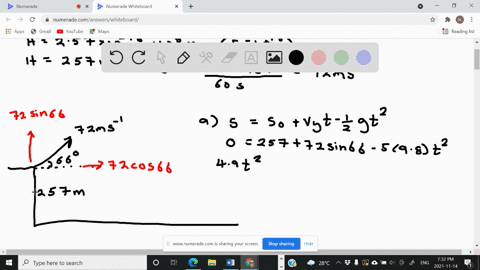 Numerade
Numerade Whiteboard
numerade.com/answers/whiteboard/
Apps
Gmail
YouTube
Maps
Reading list
H = 257
60 s
72 sin66
72ms⁻¹
66°
72cos66
257m
a) s = s₀ + vyt - ½ gt²
0 = 257 + 72sin66 - 5(9.8) t²
4.9t²
www.numerade.com is sharing your screen.
Stop sharing
Hide
Type here to search
28°C
ENG
7:32 PM
2021-11-14